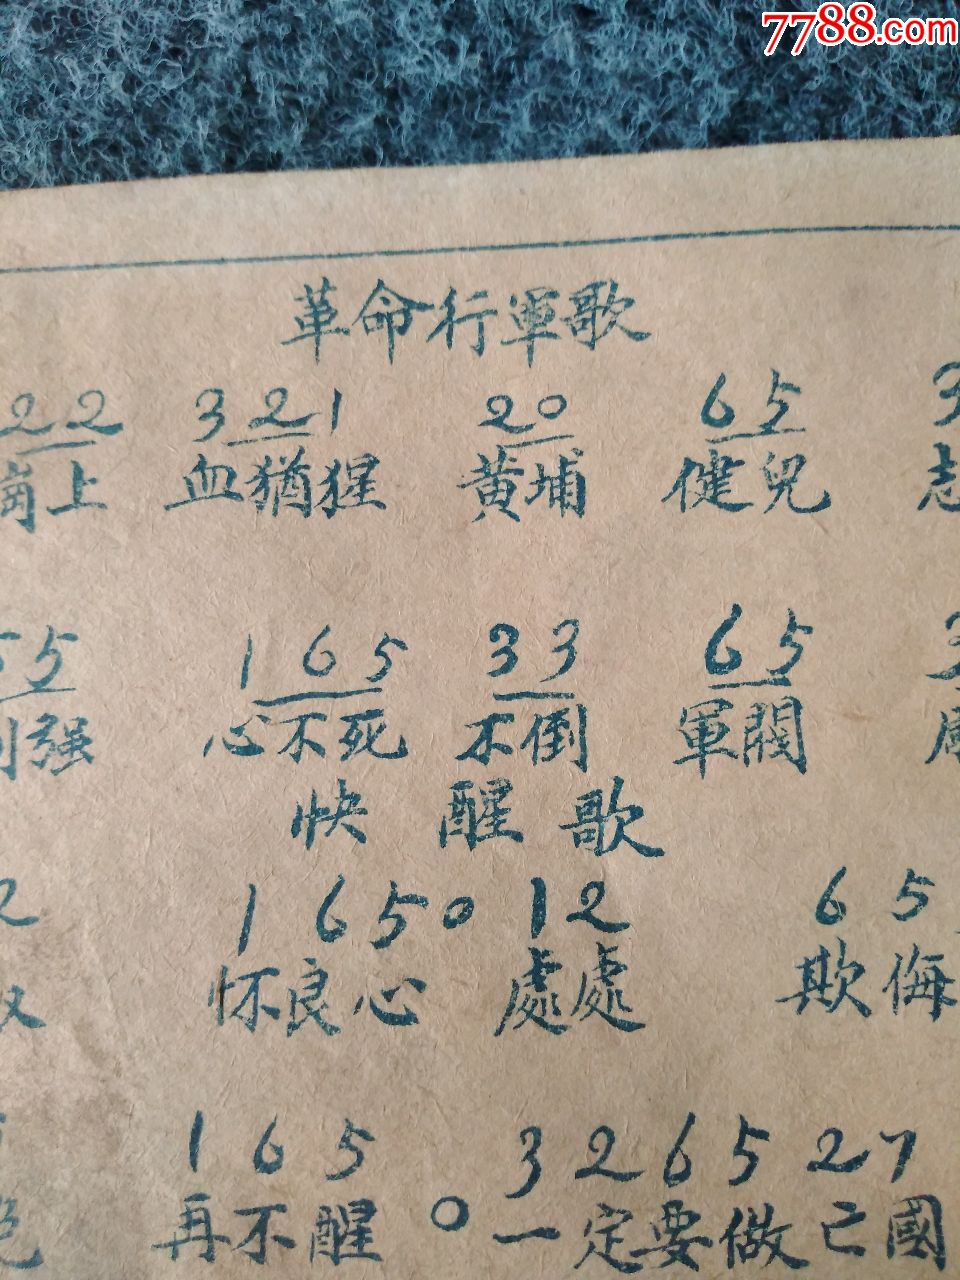 7788.com
革命行軍歌
22 321 20 65 3
崗上 血猶猩 黄埔 健兒 志
55 165 33 65 3
強 心不死 不倒 軍閥
快醒歌
2 1650 12 65
怀良心 處處 欺侮
165 326527
再不醒。一定要做亡國